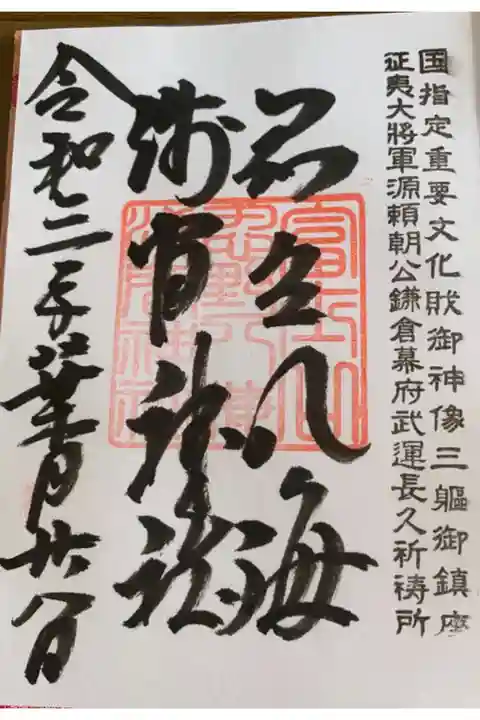 国指定重要文化財御神像三軀御鎮座
征夷大將軍源頼朝公鎌倉幕府武運長久祈祷所
忍野八海
浅間神社
令和二年葉月廿八日